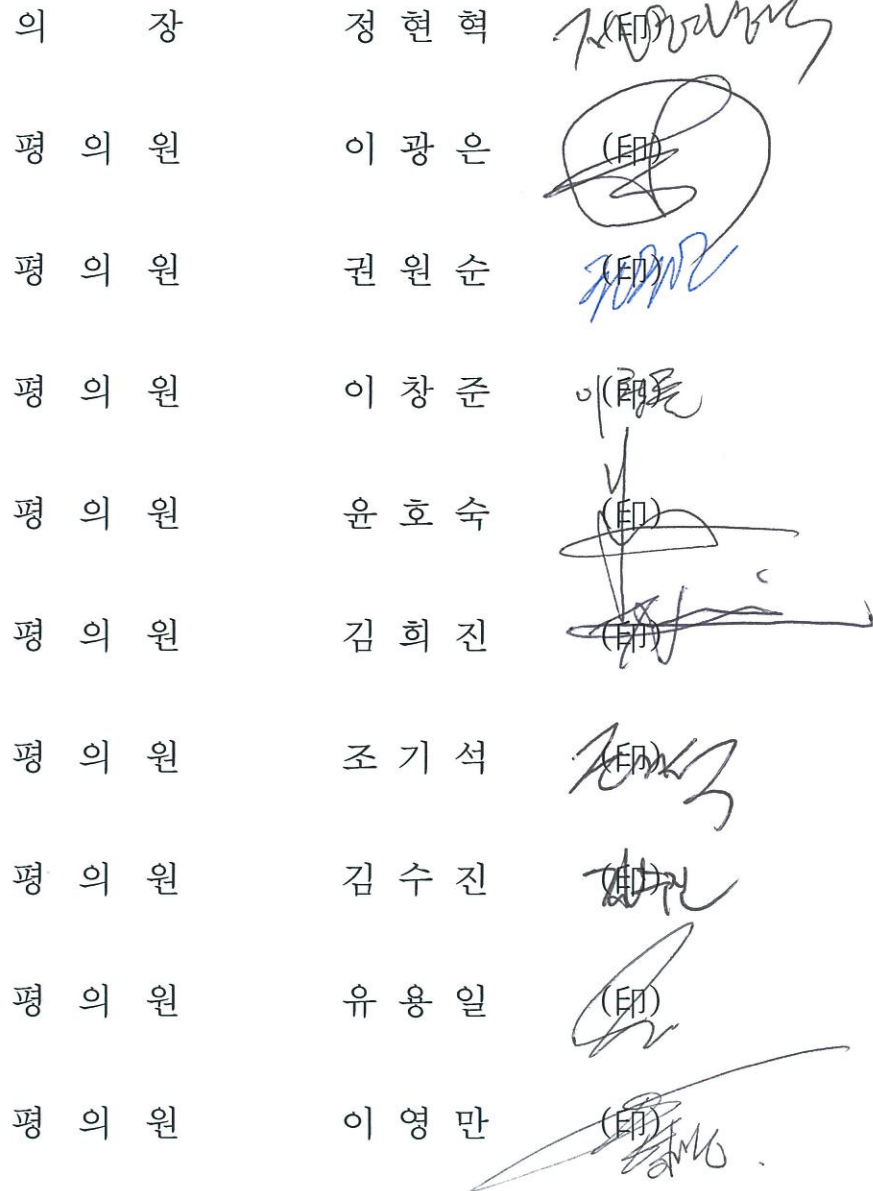 의 장 정 현 혁 (印)
평 의 원 이 광 은 (印)
평 의 원 권 원 순 (印)
평 의 원 이 창 준 (印)
평 의 원 윤 호 숙 (印)
평 의 원 김 희 진 (印)
평 의 원 조 기 석 (印)
평 의 원 김 수 진 (印)
평 의 원 유 용 일 (印)
평 의 원 이 영 만 (印)